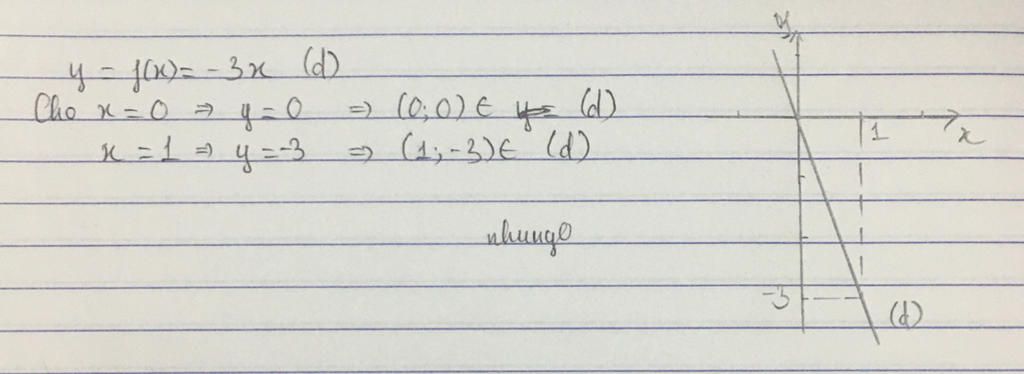 y = f(x) = -3x (d)
Cho x = 0 ⇒ y = 0 ⇒ (0; 0) ∈ (d)
x = 1 ⇒ y = -3 ⇒ (1; -3) ∈ (d)
nhung0
y
1
x
-3
(d)